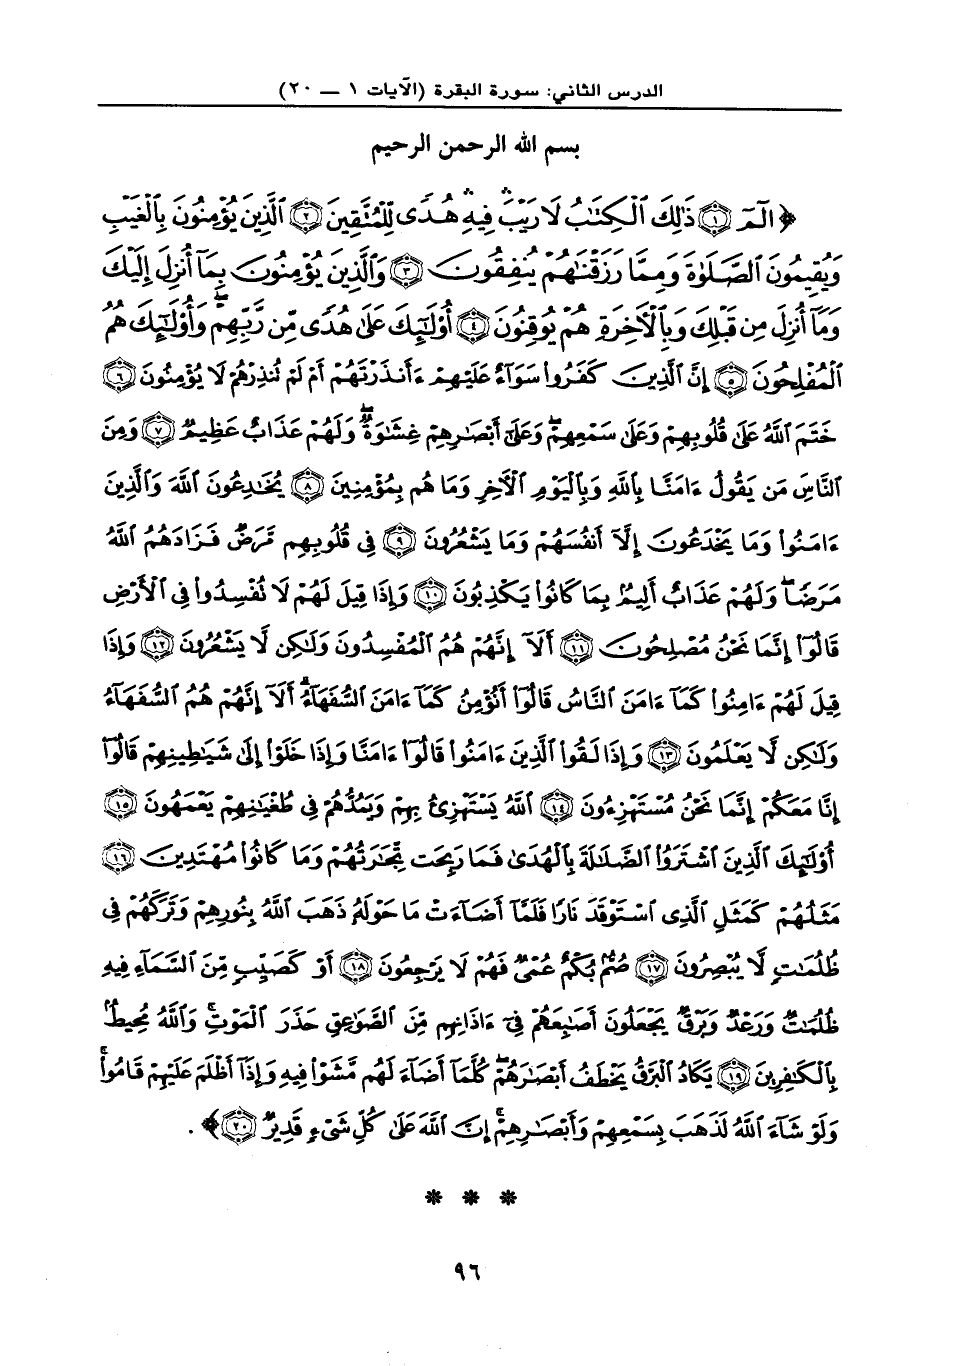 الدرس الثاني: سورة البقرة (الآيات ١ — ٢٠)
بسم الله الرحمن الرحيم
﴿ الٓمٓ ۝١ ذَٰلِكَ ٱلْكِتَٰبُ لَا رَيْبَ ۛ فِيهِ ۛ هُدًى لِّلْمُتَّقِينَ ۝٢ ٱلَّذِينَ يُؤْمِنُونَ بِٱلْغَيْبِ
وَيُقِيمُونَ ٱلصَّلَوٰةَ وَمِمَّا رَزَقْنَٰهُمْ يُنفِقُونَ ۝٣ وَٱلَّذِينَ يُؤْمِنُونَ بِمَآ أُنزِلَ إِلَيْكَ
وَمَآ أُنزِلَ مِن قَبْلِكَ وَبِٱلْأَخِرَةِ هُمْ يُوقِنُونَ ۝٤ أُوْلَٰٓئِكَ عَلَىٰ هُدًى مِّن رَّبِّهِمْ ۖ وَأُوْلَٰٓئِكَ هُمُ
ٱلْمُفْلِحُونَ ۝٥ إِنَّ ٱلَّذِينَ كَفَرُوا۟ سَوَآءٌ عَلَيْهِمْ ءَأَنذَرْتَهُمْ أَمْ لَمْ تُنذِرْهُمْ لَا يُؤْمِنُونَ ۝٦
خَتَمَ ٱللَّهُ عَلَىٰ قُلُوبِهِمْ وَعَلَىٰ سَمْعِهِمْ ۖ وَعَلَىٰٓ أَبْصَٰرِهِمْ غِشَٰوَةٌ ۖ وَلَهُمْ عَذَابٌ عَظِيمٌ ۝٧ وَمِنَ
ٱلنَّاسِ مَن يَقُولُ ءَامَنَّا بِٱللَّهِ وَبِٱلْيَوْمِ ٱلْأَخِرِ وَمَا هُم بِمُؤْمِنِينَ ۝٨ يُخَٰدِعُونَ ٱللَّهَ وَٱلَّذِينَ
ءَامَنُوا۟ وَمَا يَخْدَعُونَ إِلَّآ أَنفُسَهُمْ وَمَا يَشْعُرُونَ ۝٩ فِى قُلُوبِهِم مَّرَضٌ فَزَادَهُمُ ٱللَّهُ
مَرَضًا ۖ وَلَهُمْ عَذَابٌ أَلِيمٌۢ بِمَا كَانُوا۟ يَكْذِبُونَ ۝١٠ وَإِذَا قِيلَ لَهُمْ لَا تُفْسِدُوا۟ فِى ٱلْأَرْضِ
قَالُوٓا۟ إِنَّمَا نَحْنُ مُصْلِحُونَ ۝١١ أَلَآ إِنَّهُمْ هُمُ ٱلْمُفْسِدُونَ وَلَٰكِن لَّا يَشْعُرُونَ ۝١٢ وَإِذَا
قِيلَ لَهُمْ ءَامِنُوا۟ كَمَآ ءَامَنَ ٱلنَّاسُ قَالُوٓا۟ أَنُؤْمِنُ كَمَآ ءَامَنَ ٱلسُّفَهَآءُ ۗ أَلَآ إِنَّهُمْ هُمُ ٱلسُّفَهَآءُ
وَلَٰكِن لَّا يَعْلَمُونَ ۝١٣ وَإِذَا لَقُوا۟ ٱلَّذِينَ ءَامَنُوا۟ قَالُوٓا۟ ءَامَنَّا وَإِذَا خَلَوْا۟ إِلَىٰ شَيَٰطِينِهِمْ قَالُوٓا۟
إِنَّا مَعَكُمْ إِنَّمَا نَحْنُ مُسْتَهْزِءُونَ ۝١٤ ٱللَّهُ يَسْتَهْزِئُ بِهِمْ وَيَمُدُّهُمْ فِى طُغْيَٰنِهِمْ يَعْمَهُونَ ۝١٥
أُوْلَٰٓئِكَ ٱلَّذِينَ ٱشْتَرَوُا۟ ٱلضَّلَٰلَةَ بِٱلْهُدَىٰ فَمَا رَبِحَت تِّجَٰرَتُهُمْ وَمَا كَانُوا۟ مُهْتَدِينَ ۝١٦
مَثَلُهُمْ كَمَثَلِ ٱلَّذِى ٱسْتَوْقَدَ نَارًا فَلَمَّآ أَضَآءَتْ مَا حَوْلَهُۥ ذَهَبَ ٱللَّهُ بِنُورِهِمْ وَتَرَكَهُمْ فِى
ظُلُمَٰتٍ لَّا يُبْصِرُونَ ۝١٧ صُمٌّۢ بُكْمٌ عُمْىٌ فَهُمْ لَا يَرْجِعُونَ ۝١٨ أَوْ كَصَيِّبٍ مِّنَ ٱلسَّمَآءِ فِيهِ
ظُلُمَٰتٌ وَرَعْدٌ وَبَرْقٌ يَجْعَلُونَ أَصَٰبِعَهُمْ فِىٓ ءَاذَانِهِم مِّنَ ٱلصَّوَٰعِقِ حَذَرَ ٱلْمَوْتِ ۚ وَٱللَّهُ مُحِيطٌۢ
بِٱلْكَٰفِرِينَ ۝١٩ يَكَادُ ٱلْبَرْقُ يَخْطَفُ أَبْصَٰرَهُمْ ۖ كُلَّمَآ أَضَآءَ لَهُم مَّشَوْا۟ فِيهِ وَإِذَآ أَظْلَمَ عَلَيْهِمْ قَامُوا۟ ۚ
وَلَوْ شَآءَ ٱللَّهُ لَذَهَبَ بِسَمْعِهِمْ وَأَبْصَٰرِهِمْ ۚ إِنَّ ٱللَّهَ عَلَىٰ كُلِّ شَىْءٍ قَدِيرٌ ۝٢٠ ﴾ .
* * *
٩٦